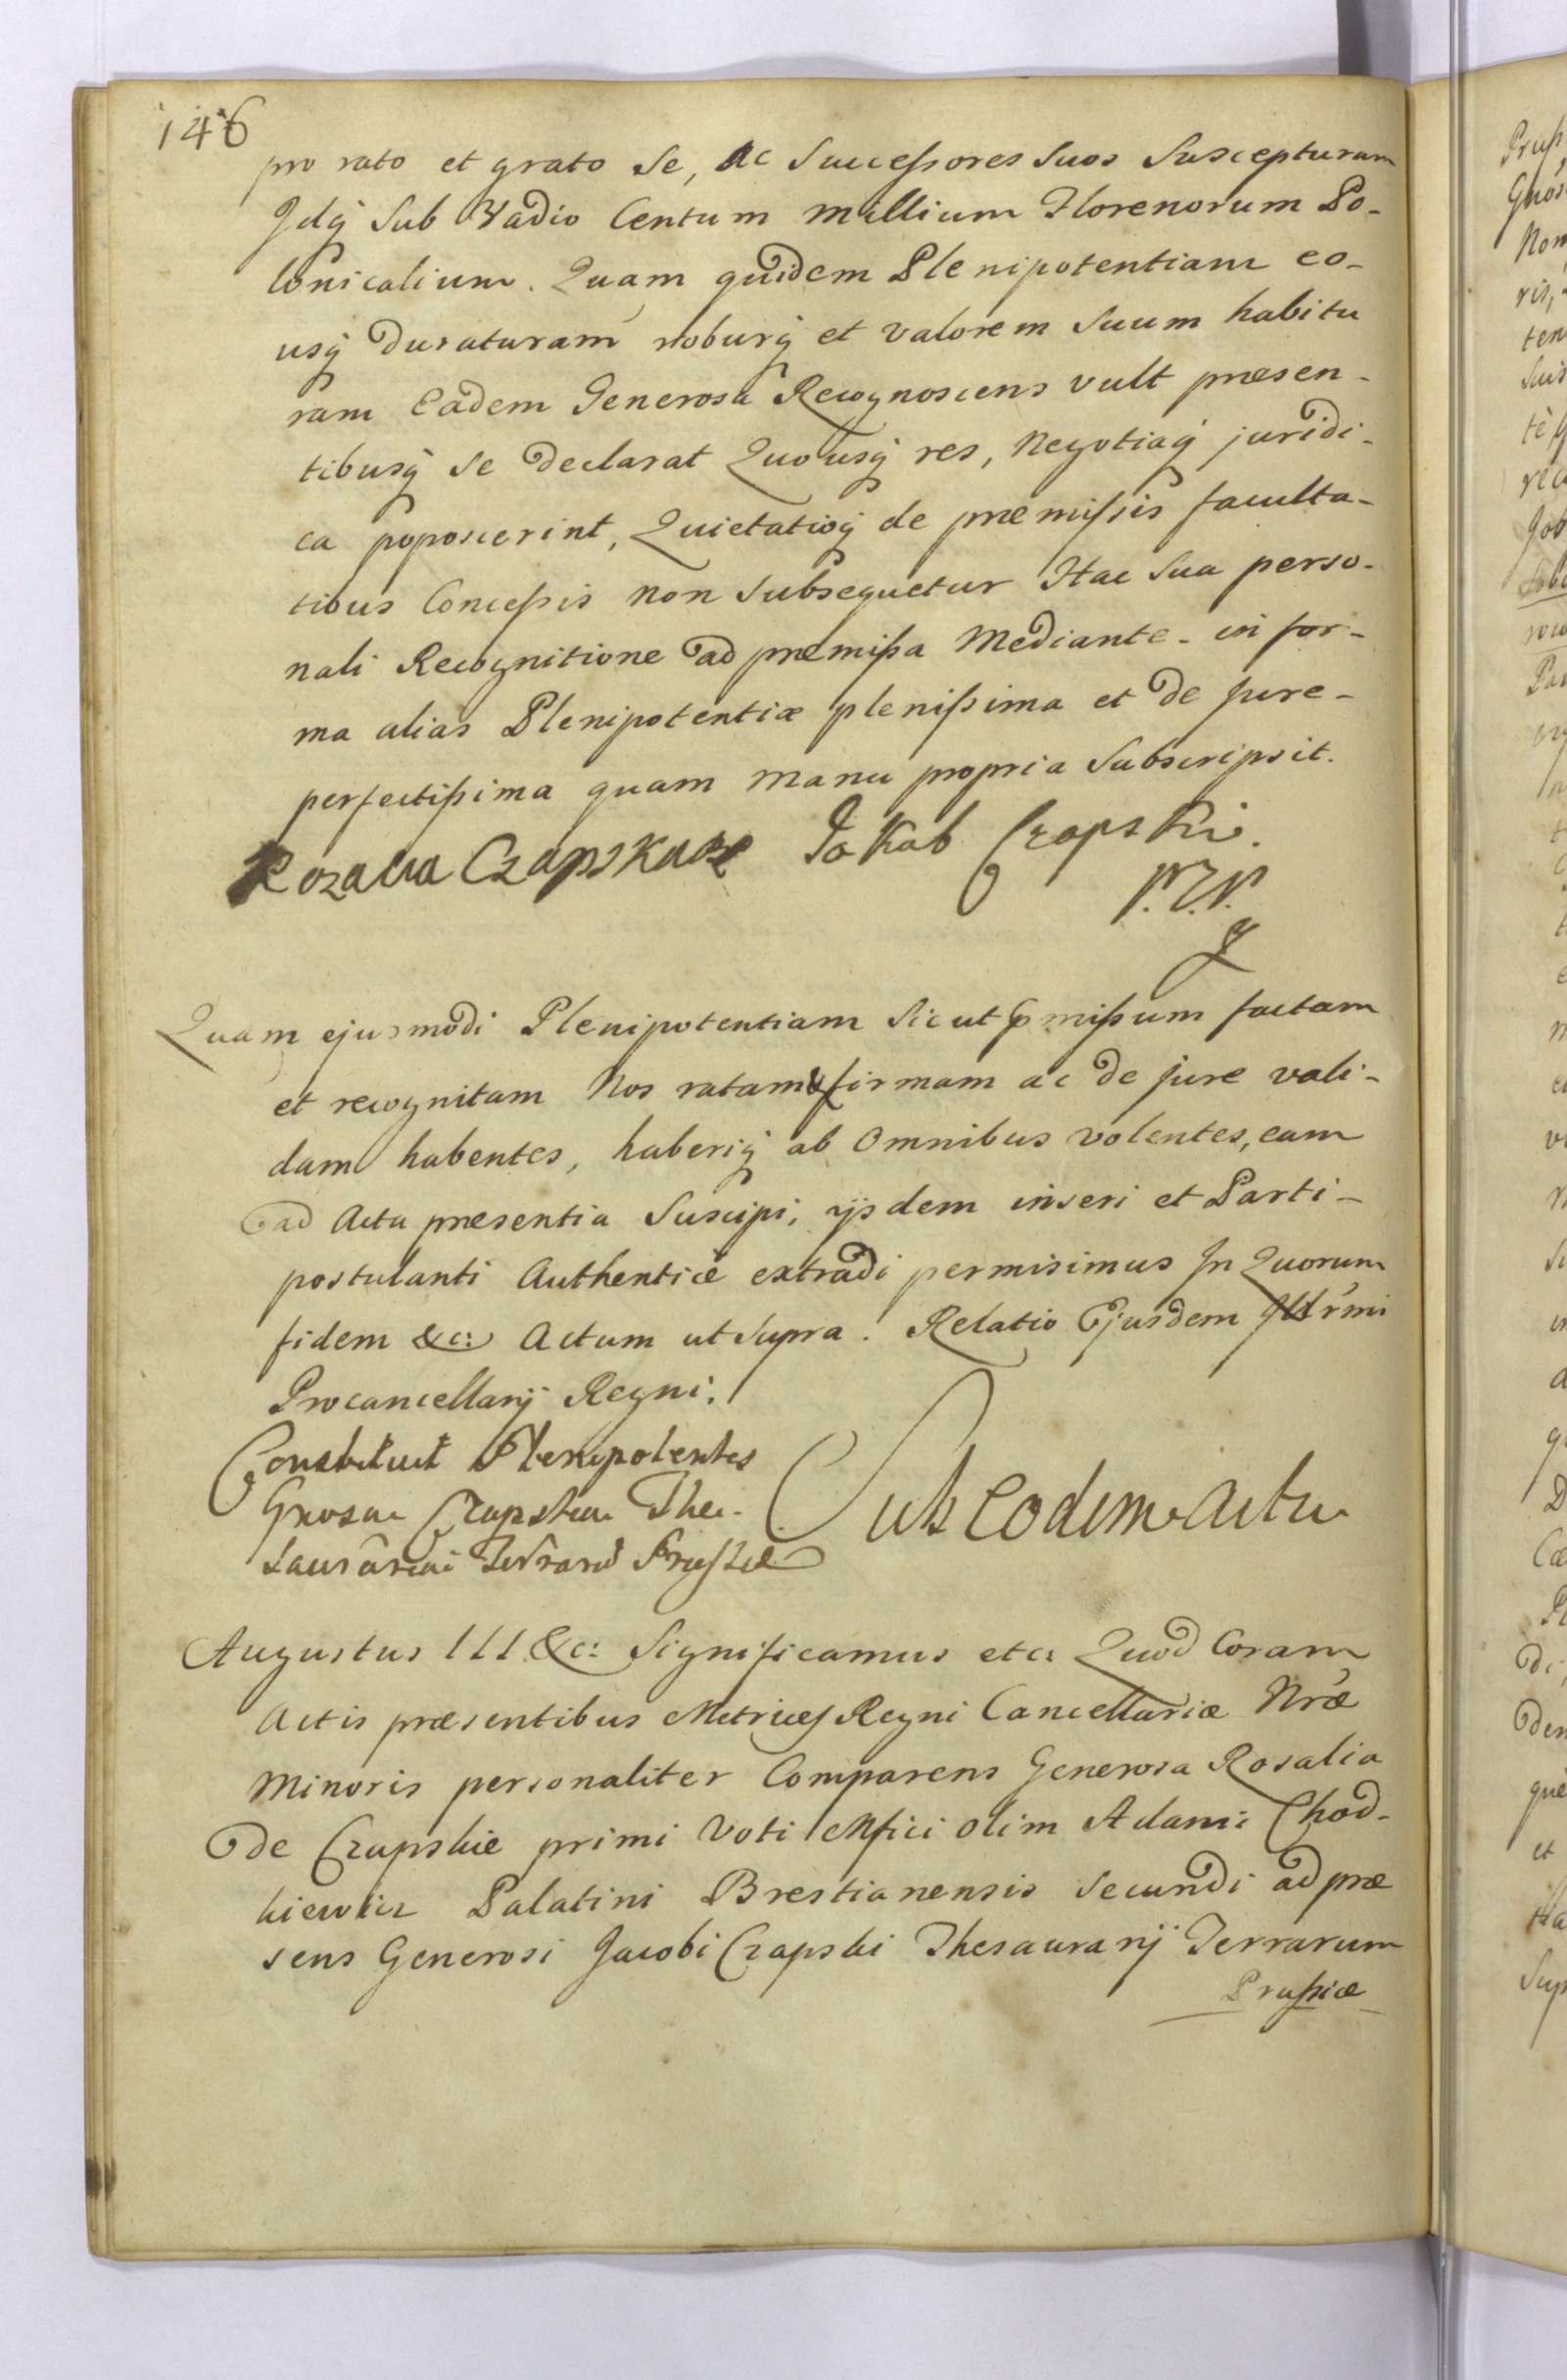 146
pro rato et grato Se, ac Succeſsores Suos Suscepturam
Idq́ Sub Vadio Centum Millium Florenorum Po-
lonicalium. Quam quidem Plenipotentiam eo-
usq́ duraturam roburq́ et valorem Suum habitu
ram Eadem Generosa Recognoscens vult praesen-
tibusq́ Se declarat Quousq́ res, Negotiaq́ juridi-
ca poposcerint, Quietatioq́ de praemiſsis faculta-
tibus Conceſsis non Subsequetur Hac Sua perso-
nali Recognitione ad praemiſsa Mediante- in for-
ma alias Plenipotentiæ pleniſsima et de jure-
perfectiſsima quam manu propria Subscripsit.
Rozalia Czapska Jakub Czapski.
P.Z.P.
Quam ejusmodi Plenipotentiam Sicut p̱miſsum factam
et recognitam Nos ratam & firmam ac de jure vali-
dam habentes, haberiq́ ab Omnibus volentes, eam
ad Acta praesentia Suscipi, ijsdem inseri et Parti-
postulanti Authenticè extradi permisimus In Quorum
fidem &c: Actum ut Supra. Relatio Ejusdem Illr̃mi
Procancellarij Regni.
Constituit Plenipotentes
Gnosa Czapska The-
saurariai Terrarũ Pruſsiæ
Sub Eodem Actu
Augustus III &c: Significamus etc: Quod Coram
Actis præsentibus Metrices Regni Cancellariæ Nr̃æ
Minoris personaliter Comparens Generosa Rosalia
de Czapskie primi Voti Mfici olim Adami Chod-
kiewicz Palatini Brestianensis Secundi ad præ
sens Generosi Jacobi Czapski Thesaurarij Terrarum
Pruſsiæ